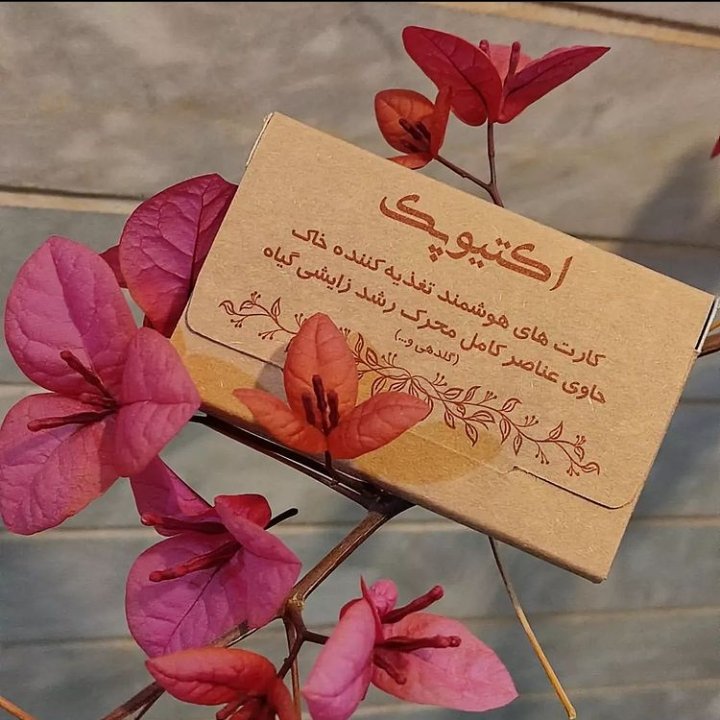 اکتیوپک
کارت های هوشمند تغذیه کننده خاک
حاوی عناصر کامل محرک رشد زایشی گیاه
(گلدهی و...)